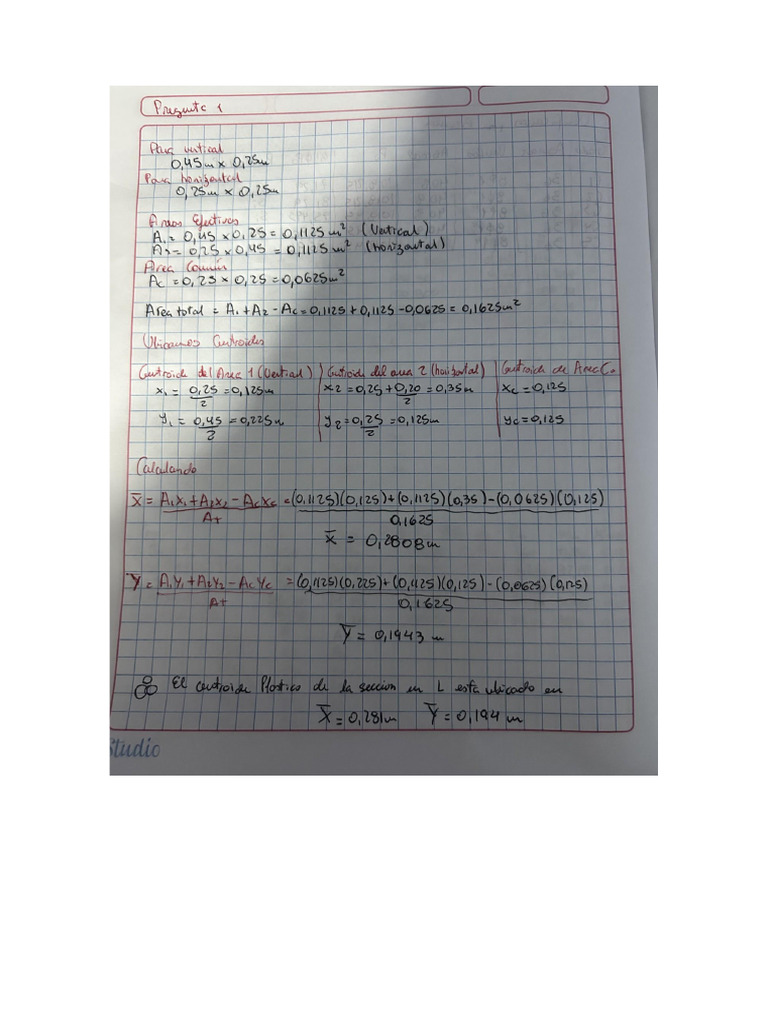 Pregunta 1
Para vertical
0,45m x 0,25m
Para horizontal
0,25m x 0,25m
Areas Efectivas
A1 = 0,45 x 0,25 = 0,1125 m² (Vertical)
A2 = 0,25 x 0,45 = 0,1125 m² (horizontal)
Area Común
Ac = 0,25 x 0,25 = 0,0625 m²
Area total = A1 + A2 - Ac = 0,1125 + 0,1125 - 0,0625 = 0,1625 m²
Ubicamos Centroides
Centroide del Area 1 (Vertical) | Centroide del area 2 (horizontal) | Centroide de Area C.
x1 = 0,25/2 = 0,125m | x2 = 0,25 + 0,20/2 = 0,35m | xc = 0,125
y1 = 0,45/2 = 0,225m | y2 = 0,25/2 = 0,125m | yc = 0,125
Calculando
X̅ = A1x1 + A2x2 - Acxc / AT = (0,1125)(0,125) + (0,1125)(0,35) - (0,0625)(0,125) / 0,1625
X̅ = 0,2808m
Y = A1y1 + A2y2 - Acyc / AT = (0,1125)(0,225) + (0,1125)(0,125) - (0,0625)(0,125) / 0,1625
Y̅ = 0,1943 m
El centroide Plastico de la seccion en L esta ubicado en
X̅ = 0,281m Y̅ = 0,194 m
Studio